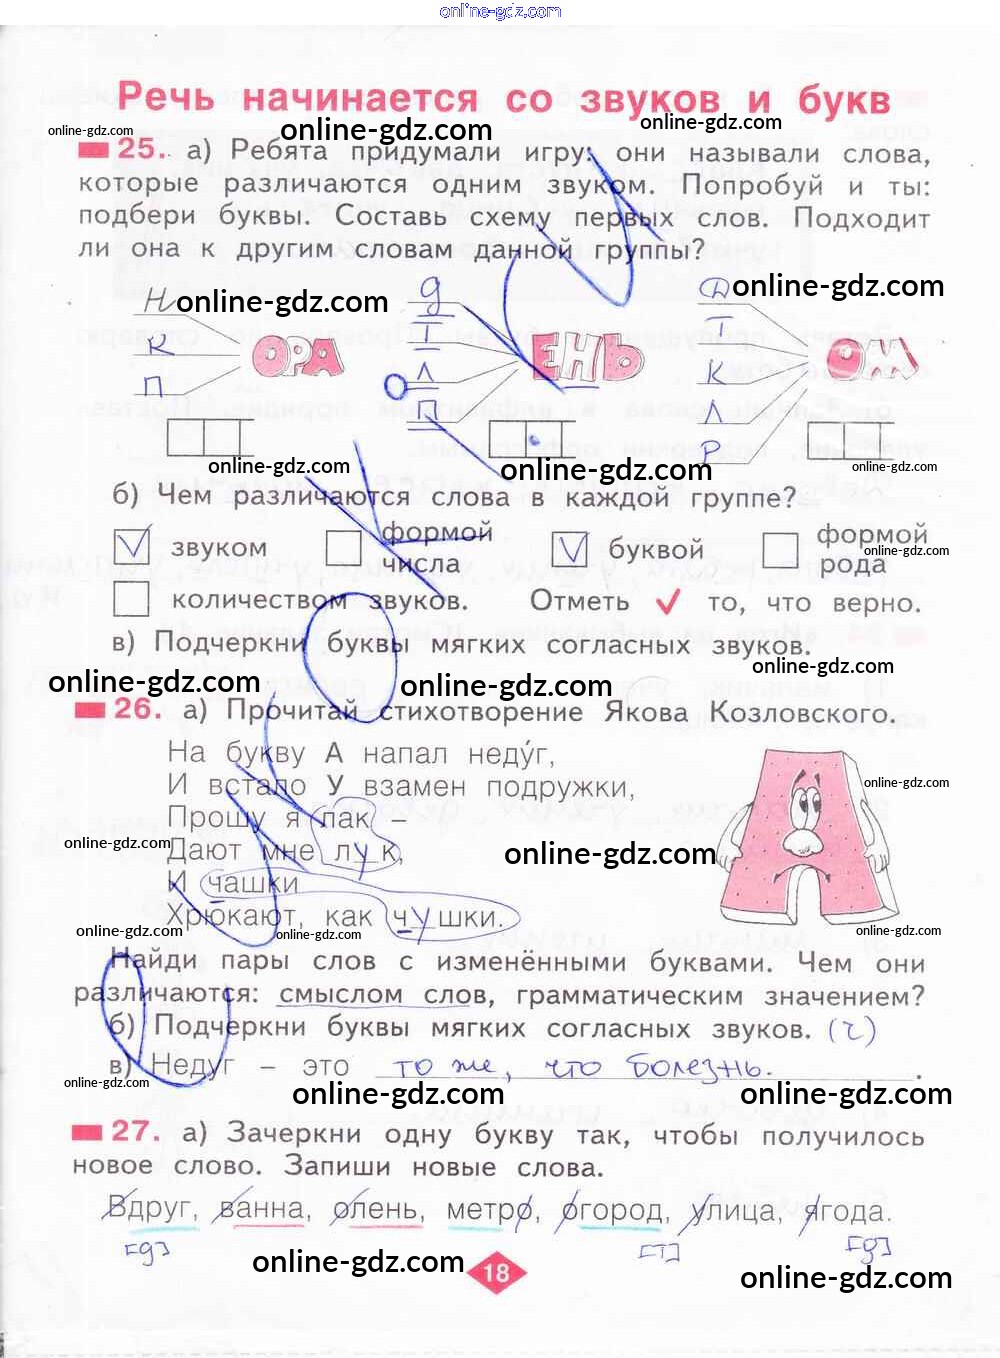 online-gdz.com
Речь начинается со звуков и букв
online-gdz.com online-gdz.com online-gdz.com
25. а) Ребята придумали игру: они называли слова,
которые различаются одним звуком. Попробуй и ты:
подбери буквы. Составь схему первых слов. Подходит
ли она к другим словам данной группы?
Н online-gdz.com д online-gdz.com
Т Т
К ОРА ЕНЬ ОМ
П Л К
П Л
Р
online-gdz.com online-gdz.com online-gdz.com
б) Чем различаются слова в каждой группе?
звуком формой числа буквой формой рода
online-gdz.com
количеством звуков. Отметь ✓ то, что верно.
в) Подчеркни буквы мягких согласных звуков.
online-gdz.com online-gdz.com online-gdz.com
26. а) Прочитай стихотворение Якова Козловского.
На букву А напал неду́г,
И встало У взамен подружки,
online-gdz.com
Прошу я лак –
online-gdz.com
Дают мне лук,
online-gdz.com
И чашки
Хрюкают, как чушки.
online-gdz.com online-gdz.com online-gdz.com
Найди пары слов с изменёнными буквами. Чем они
различаются: смыслом слов, грамматическим значением?
б) Подчеркни буквы мягких согласных звуков. (ч)
в) Недуг – это то же, что болезнь.
online-gdz.com online-gdz.com online-gdz.com
27. а) Зачеркни одну букву так, чтобы получилось
новое слово. Запиши новые слова.
Вдруг, ванна, олень, метро, огород, улица, ягода.
[д] [т] [д]
online-gdz.com 18 online-gdz.com